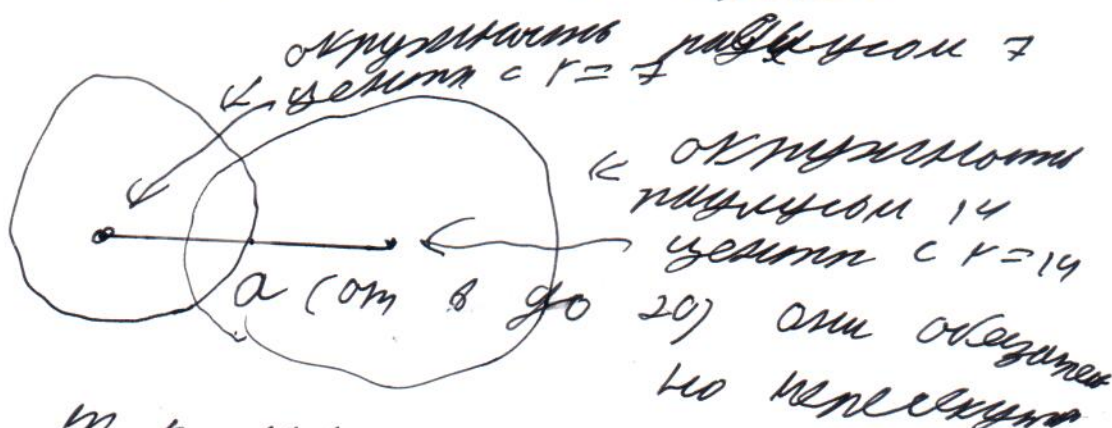 окружность радиусом 7
центр с r = 7
окружность
радиусом 14
центр с r = 14
a (от 8 до 20) они обязатель
но пересекутся